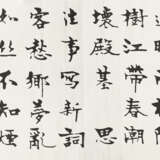 樹江帶春潮
壞殿基思
往事寫新詞
客愁鄉夢亂
如絲不知煙